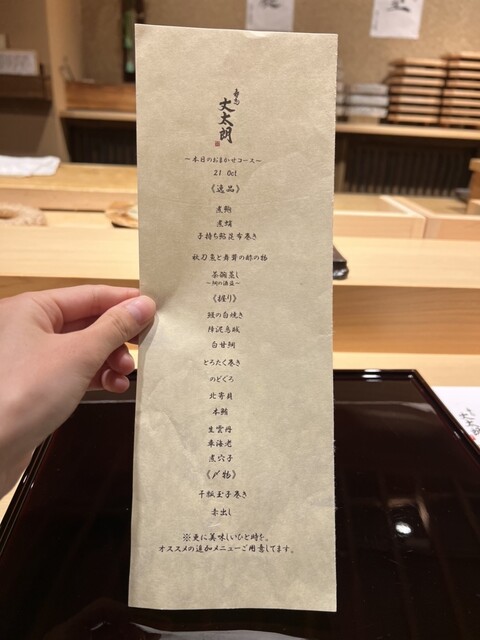 丈太朗
〜本日のおまかせコース〜
21 Oct
《逸品》
煮鮑
煮蛸
子持ち鮎昆布巻き
秋刀魚と舞茸の酢の物
茶碗蒸し
《握り》
鰻の白焼き
白甘鯛
とろたく巻き
のどぐろ
北寄貝
本鮪
生雲丹
車海老
煮穴子
《〆物》
干瓢玉子巻き
赤出し
※更に美味しいひと時を。
オススメの追加メニューご用意してます。